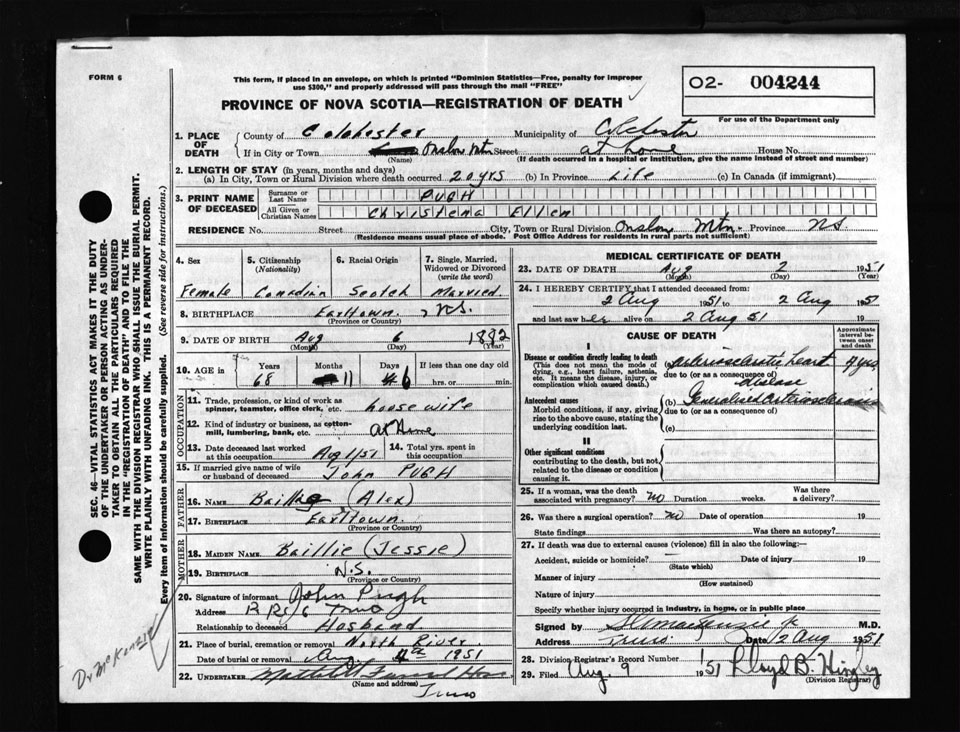 FORM 6
This form, if placed in an envelope, on which is printed "Dominion Statistics—Free, penalty for improper
use $300," and properly addressed will pass through the mail "FREE"
O2- 004244
PROVINCE OF NOVA SCOTIA—REGISTRATION OF DEATH
For use of the Department only
1. PLACE OF DEATH
County of Colchester Municipality of Colchester
If in City or Town Onslow Mtn Street at home House No.
(Name) (If death occurred in a hospital or institution, give the name instead of street and number)
2. LENGTH OF STAY (in years, months and days)
(a) In City, Town or Rural Division where death occurred 20 yrs (b) In Province Life (c) In Canada (if immigrant)
3. PRINT NAME OF DECEASED
Surname or Last Name PUGH
All Given or Christian Names Christena Ellen
RESIDENCE No. Street City, Town or Rural Division Onslow Mtn. Province NS
(Residence means usual place of abode. Post Office Address for residents in rural parts not sufficient)
4. Sex
Female
5. Citizenship (Nationality)
Canadian
6. Racial Origin
Scotch
7. Single, Married, Widowed or Divorced (write the word)
Married
8. BIRTHPLACE Earltown, NS.
(Province or Country)
9. DATE OF BIRTH Aug 6 1882
(Month) (Day) (Year)
10. AGE in Years 68 Months 11 Days 6 If less than one day
hrs. or min.
OCCUPATION
11. Trade, profession, or kind of work as
spinner, teamster, office clerk, etc. housewife
12. Kind of industry or business, as cotton-
mill, lumbering, bank, etc. at Home
13. Date deceased last worked
at this occupation Aug 1/51
14. Total yrs. spent in
this occupation
15. If married give name of wife
or husband of deceased John PUGH
FATHER
16. NAME (Alex)
17. BIRTHPLACE Earltown.
(Province or Country)
MOTHER
18. MAIDEN NAME Baillie (Jessie)
19. BIRTHPLACE N.S.
(Province or Country)
20. Signature of informant John Pugh
Address Truro
Relationship to deceased Hosband
21. Place of burial, cremation or removal North River
Date of burial or removal Aug 4th 1951
22. UNDERTAKER Funeral Home
(Name and address)
Truro
MEDICAL CERTIFICATE OF DEATH
23. DATE OF DEATH Aug 2 1951
(Month) (Day) (Year)
24. I HEREBY CERTIFY that I attended deceased from:
2 Aug 1951 to 2 Aug 1951
and last saw her alive on 2 Aug 51 19
CAUSE OF DEATH
Approximate interval between onset and death
I
Disease or condition directly leading to death
(This does not mean the mode of
dying, e.g., heart failure, asthenia,
etc. It means the disease, injury, or
complication which caused death.)
(a) Arteriosclerotic heart yrs
due to (or as a consequence of)
disease
Antecedent causes
Morbid conditions, if any, giving
rise to the above cause, stating the
underlying condition last.
(b) Generalised Arteriosclerosis
due to (or as a consequence of)
(c)
II
Other significant conditions
contributing to the death, but not
related to the disease or condition
causing it.
25. If a woman, was the death
associated with pregnancy? no Duration weeks. Was there
a delivery?
26. Was there a surgical operation? no Date of operation 19
State findings Was there an autopsy?
27. If death was due to external causes (violence) fill in also the following:—
Accident, suicide or homicide? Date of injury 19
(State which)
Manner of injury
(How sustained)
Nature of injury
Specify whether injury occurred in industry, in home, or in public place
Signed by MacKenzie Jr M.D.
Address Truro Date 2 Aug 1951
28. Division Registrar's Record Number
29. Filed Aug. 9 1951 Lloyd B. Hingley
(Division Registrar)
SEC. 46—VITAL STATISTICS ACT MAKES IT THE DUTY
OF THE UNDERTAKER OR PERSON ACTING AS UNDER-
TAKER TO OBTAIN ALL THE PARTICULARS REQUIRED
IN THE "REGISTRATION OF DEATH" AND TO FILE THE
SAME WITH THE DIVISION REGISTRAR WHO SHALL ISSUE THE BURIAL PERMIT.
WRITE PLAINLY WITH UNFADING INK. THIS IS A PERMANENT RECORD.
Every item of information should be carefully supplied. (See reverse side for instructions.)
Dr McKenzie